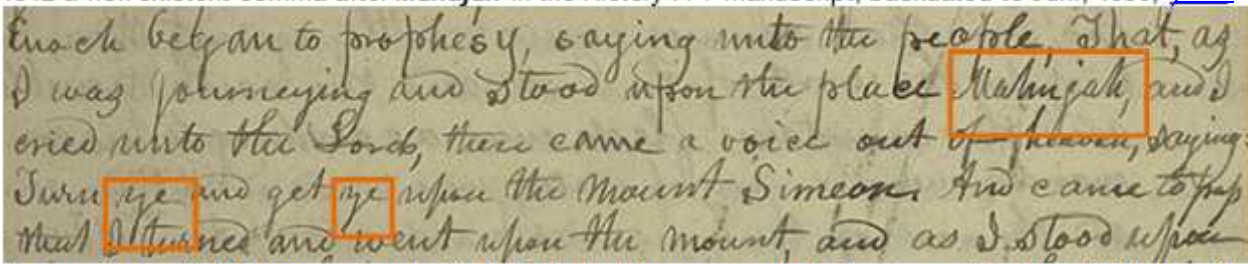 Enoch began to prophesy, saying unto the people, That, as
I was journeying and stood upon the place Mahujah, and I
cried unto the Lord, there came a voice out of heaven, saying
Turn ye and get ye upon the mount Simeon. And came to pass
that I turned and went upon the mount, and as I stood upon